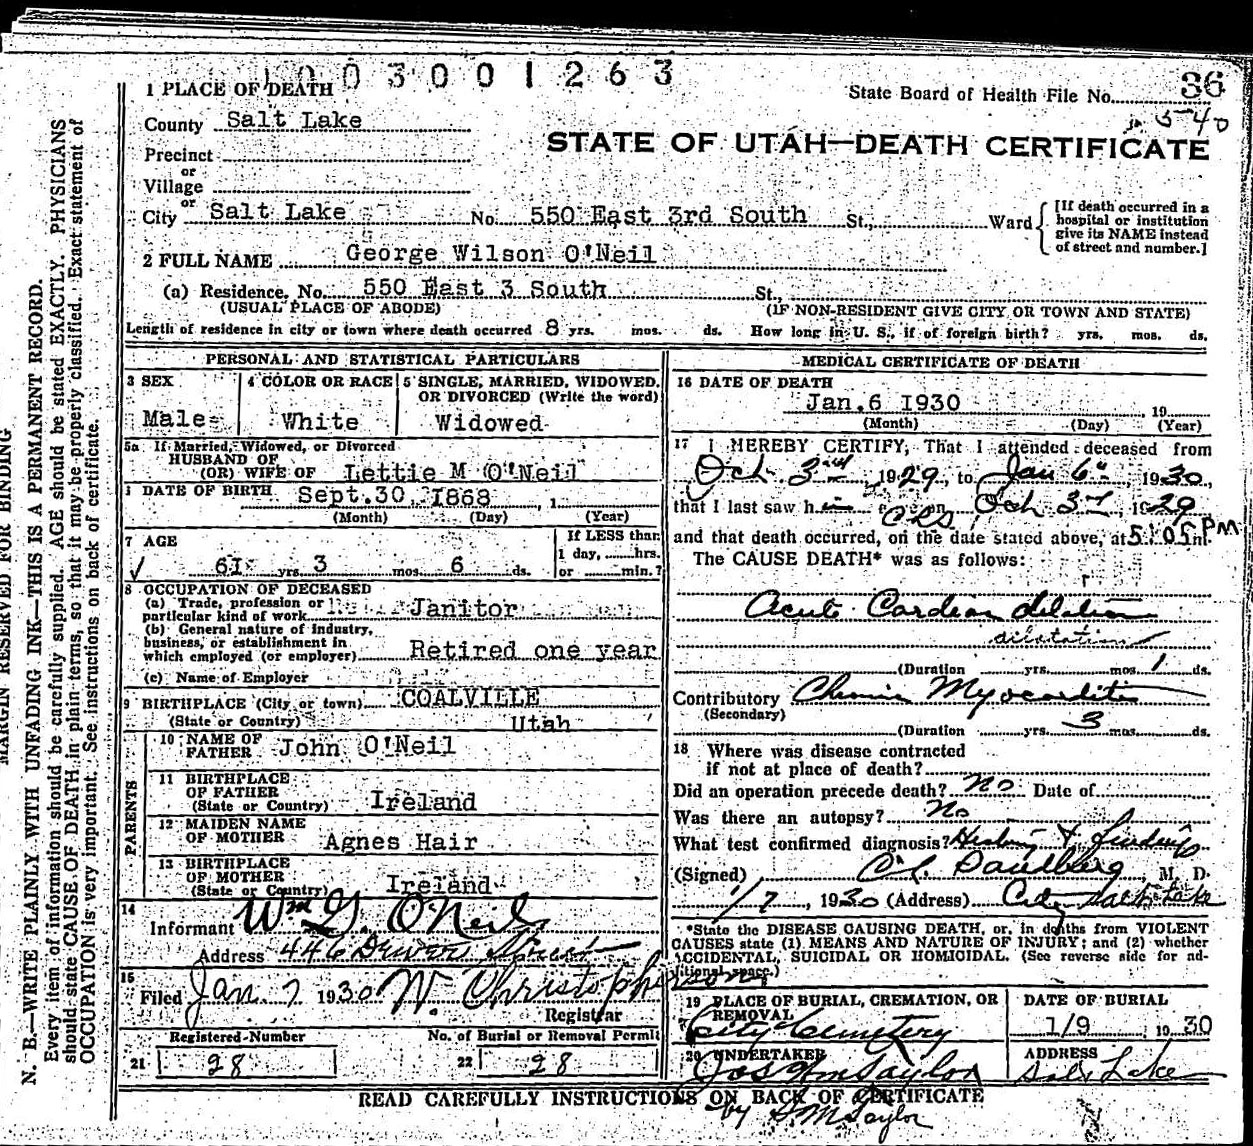 1003001263
1 PLACE OF DEATH
State Board of Health File No. 36
County Salt Lake
540
STATE OF UTAH—DEATH CERTIFICATE
Precinct
or
Village
or
City Salt Lake No. 550 East 3rd South St., Ward
[If death occurred in a
hospital or institution
give its NAME instead
of street and number.]
2 FULL NAME George Wilson O'Neil
(a) Residence, No. 550 East 3 South St.,
(USUAL PLACE OF ABODE) (IF NON-RESIDENT GIVE CITY OR TOWN AND STATE)
Length of residence in city or town where death occurred 8 yrs. mos. ds. How long in U. S., if of foreign birth? yrs. mos. ds.
PERSONAL AND STATISTICAL PARTICULARS
3 SEX
Male
4 COLOR OR RACE
White
5 SINGLE, MARRIED, WIDOWED,
OR DIVORCED (Write the word)
Widowed
5a If Married, Widowed, or Divorced
HUSBAND OF
(OR) WIFE OF Lettie M O'Neil
DATE OF BIRTH Sept. 30, 1868, 1
(Month) (Day) (Year)
7 AGE
61 yrs 3 mos 6 ds.
If LESS than
1 day, hrs.
or min.?
8 OCCUPATION OF DECEASED
(a) Trade, profession or
particular kind of work Janitor
(b) General nature of industry,
business, or establishment in
which employed (or employer) Retired one year
(c) Name of Employer
9 BIRTHPLACE (City or town) COALVILLE
(State or Country) Utah
PARENTS
10 NAME OF
FATHER John O'Neil
11 BIRTHPLACE
OF FATHER
(State or Country) Ireland
12 MAIDEN NAME
OF MOTHER Agnes Hair
13 BIRTHPLACE
OF MOTHER
(State or Country) Ireland
14
Informant Wm G. O'Neil
Address 446 Denver Street
15
Filed Jan 7 1930 W. Christopherson
Registrar
Registered Number
21 28
No. of Burial or Removal Permit
22 28
MEDICAL CERTIFICATE OF DEATH
16 DATE OF DEATH
Jan. 6 1930, 19
(Month) (Day) (Year)
17 I HEREBY CERTIFY, That I attended deceased from
Oct 3rd 1929, to Jan 6" 1930,
that I last saw h on Oct 3rd, 1929
CRS
and that death occurred, on the date stated above, at 5:05 PM m.
The CAUSE DEATH* was as follows:
Acute Cardiac dilation
dilatation
(Duration yrs. mos. 1 ds.
Contributory Chronic Myocarditis
(Secondary)
(Duration yrs. 3 mos. ds.
18 Where was disease contracted
if not at place of death?
Did an operation precede death? No Date of
Was there an autopsy? No
What test confirmed diagnosis? History & findings
(Signed) , M. D.
1/7, 1930 (Address) City Salt Lake
*State the DISEASE CAUSING DEATH, or, in deaths from VIOLENT
CAUSES state (1) MEANS AND NATURE OF INJURY; and (2) whether
ACCIDENTAL, SUICIDAL OR HOMICIDAL. (See reverse side for ad-
ditional space.)
19 PLACE OF BURIAL, CREMATION, OR
REMOVAL
City Cemetery
DATE OF BURIAL
1/9 1930
20 UNDERTAKER
Jos Wm Taylor
by S M Taylor
ADDRESS
Salt Lake
READ CAREFULLY INSTRUCTIONS ON BACK OF CERTIFICATE
MARGIN RESERVED FOR BINDING
N. B.—WRITE PLAINLY WITH UNFADING INK—THIS IS A PERMANENT RECORD.
Every item of information should be carefully supplied. AGE should be stated EXACTLY. PHYSICIANS
should state CAUSE OF DEATH in plain terms, so that it may be properly classified. Exact statement of
OCCUPATION is very important. See instructions on back of certificate.